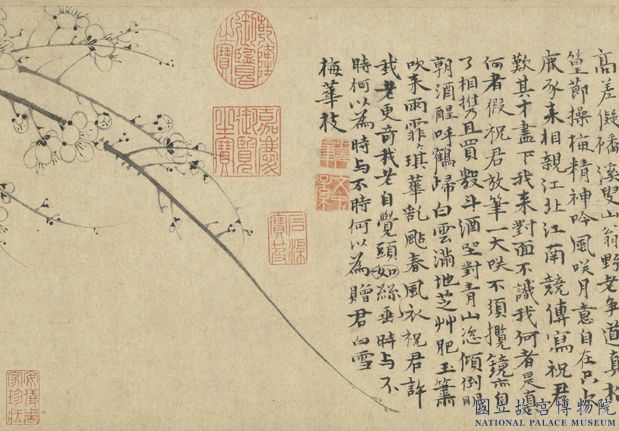 高差儗磻溪叟山翁野老爭道真松
篁節操梅精神吟風咲月意自在只欠
鹿豕來相親江北江南競傳寫祝君
歎其才盡下我來對面不識我何者是真
何者假祝君放筆一大咲不須攬鏡亦自
了相攜且買數斗酒坐對青山恣傾倒明
朝酒醒呼鶴歸白雲滿地芝艸肥玉簫
吹來雨霏々琪華亂颭春風衣祝君許
我老更奇我老自覺頭如絲垂時與不
時何以為時與不時何以為贈君白雪
梅華枝
乾隆御覽之寶
嘉慶御覽之寶
石渠寶笈
安儀周家珍藏
國立故宮博物院
NATIONAL PALACE MUSEUM